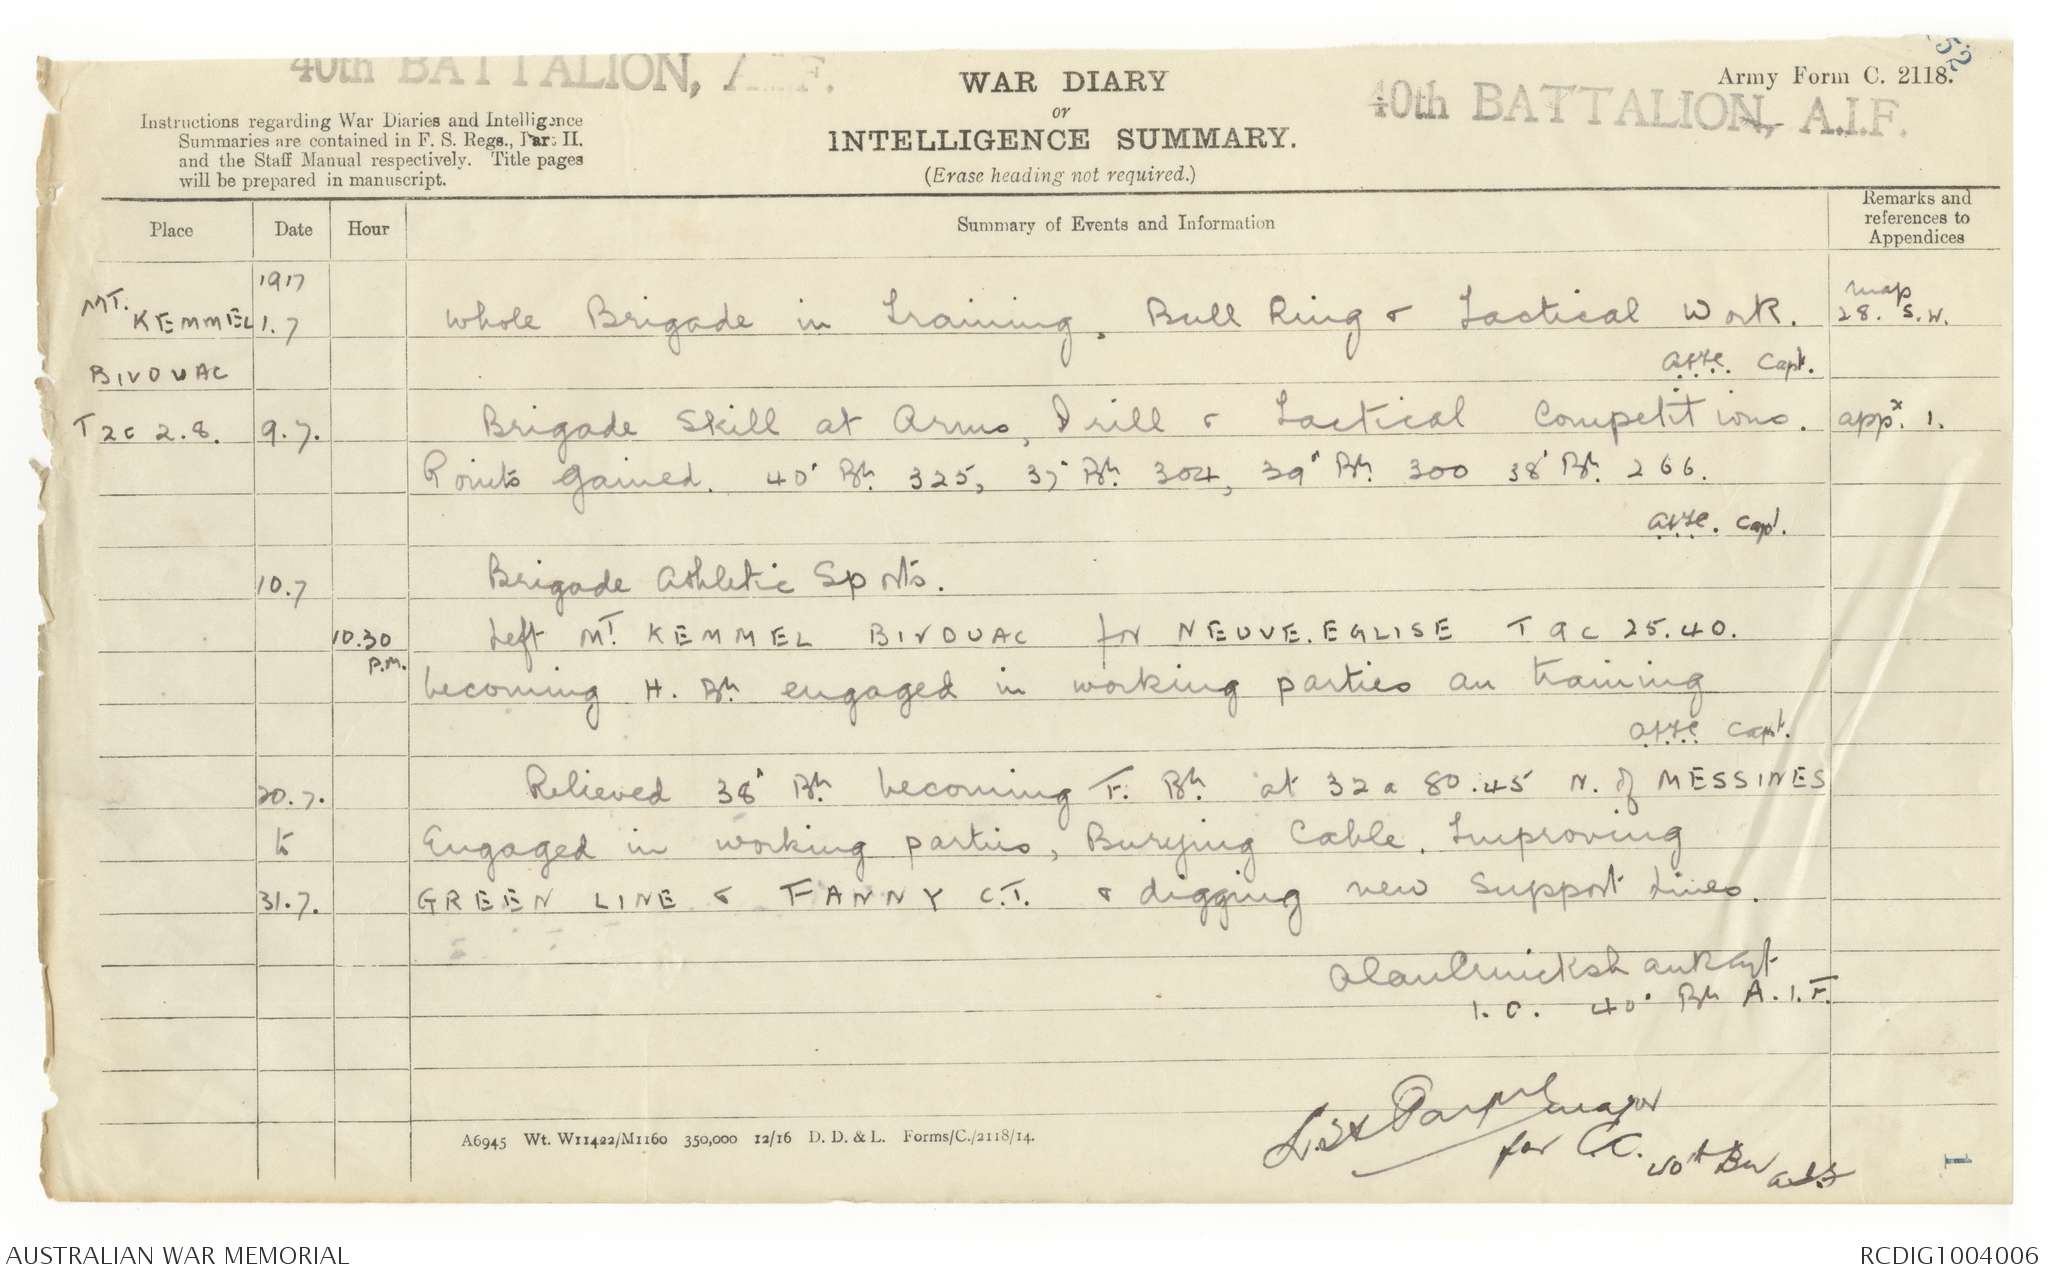 52
40th BATTALION, A.I.F.
WAR DIARY
or
INTELLIGENCE SUMMARY.
(Erase heading not required.)
Army Form C. 2118.
40th BATTALION, A.I.F.
Instructions regarding War Diaries and Intelligence
Summaries are contained in F. S. Regs., Part II.
and the Staff Manual respectively. Title pages
will be prepared in manuscript.
Place Date Hour Summary of Events and Information Remarks and references to Appendices
1917
MT. KEMMEL 1.7 Whole Brigade in Training, Bull Ring & Tactical Work. map 28. S.W.
BIVOUAC Capt.
T 2c 2.8. 9.7. Brigade Skill at Arms, Drill & Tactical Competitions. appx. 1.
Points Gained. 40' Bn. 325, 37' Bn. 304, 39' Bn. 300 38' Bn. 266.
Capt.
10.7 Brigade Athletic Sports.
10.30 P.M. Left MT KEMMEL BIVOUAC for NEUVE.EGLISE T 9c 25.40.
becoming H. Bn. engaged in working parties an training
Capt.
20.7. Relieved 38' Bn. becoming F. Bn. at 32a 80.45 N. of MESSINES
to Engaged in working parties, Burying Cable, Improving
31.7. GREEN LINE & FANNY C.T. & digging new support Lines.
Alan Cruickshank Capt
I.O. 40' Bn A.I.F.
Major
for C.O. 40th Bn A.I.F
A6945 Wt. W11422/M1160 350,000 12/16 D. D. & L. Forms/C./2118/14.
1
AUSTRALIAN WAR MEMORIAL
RCDIG1004006